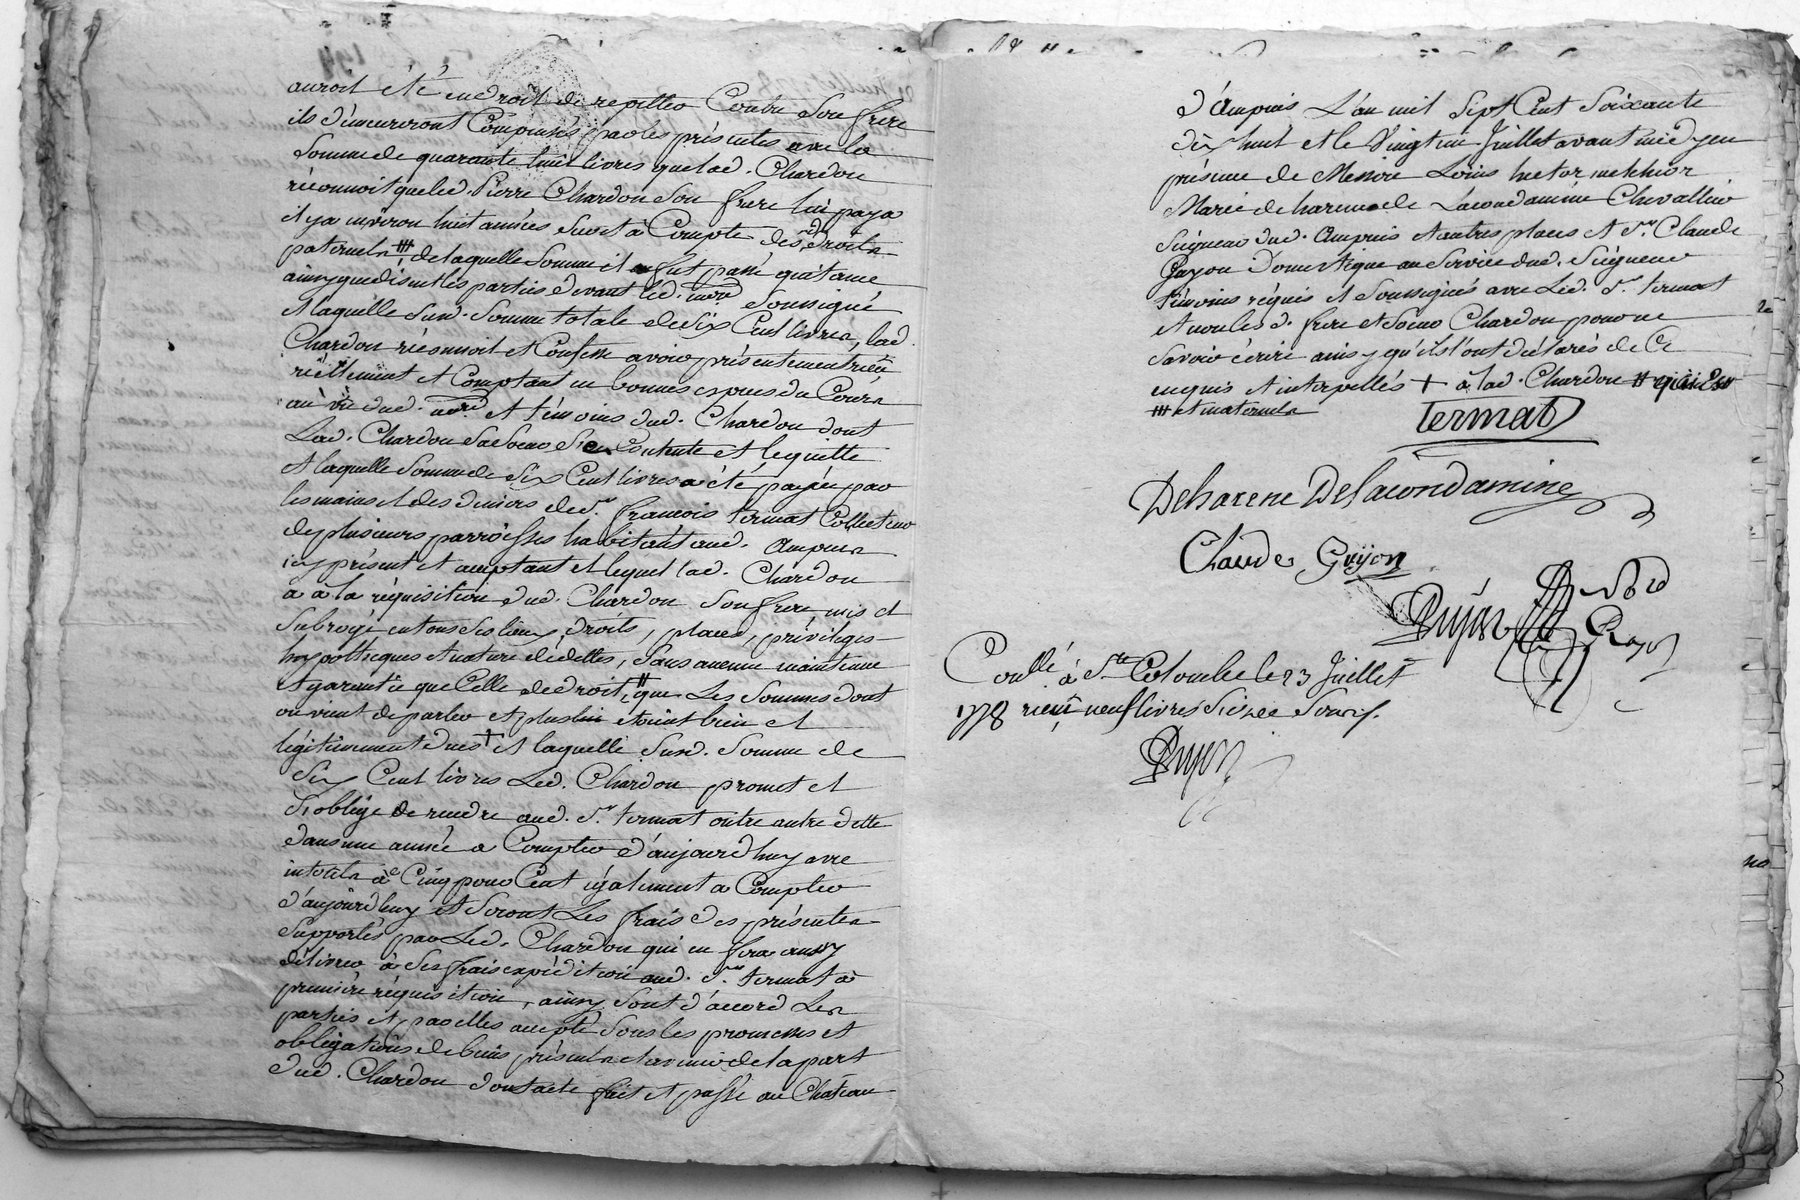 auroit été en droit de repetter Contre Son frere
ils d'emeureront Compensés par les présentes avec la
Somme de quarante huit livres que lad. Chardon
réconnoit que led. Pierre Chardon Son frere lui paya
il y a environ huit années Suret à Compte des d. droits
paternels ⧻ de laquelle Somme il en fut passé quitance
ainsy que disent les parties devant led. no.re Soussigné
et laquelle Susd. Somme totale de Six Cent livres, lad.
Chardon réconnoit et Confesse avoir présentement reçu
réellement et Comptant en bonnes espèces du Cours
au vu dud. no.re et témoins dud. Chardon dont
Lad. Chardon Sa Soeur Se Contente et le quitte
et laquelle Somme de Six Cent livres a été payée par
les mains et des deniers de S.r françois termat Collecteur
de plusieurs parroisses habitant aud. Ampuis
icy présent et acceptant et lequel lad. Chardon
a à la réquisition dud. Chardon Son frere mis et
Subrogé en tous Ses lieux, droits, places, privileges
hypotheques et nature de dettes, Sans aucune maintenue
et garantie que Celle de droit, # que Les Sommes dont
on vient de parler et plus étoient bien et
légitimement dues + et laquelle Susd. Somme de
Six Cent livres Led. Chardon promet et
S'oblige de rendre aud. S.r termat outre autre dette
dans une année a Compter d'aujourdhuy avec
interets à Cinq pour Cent également a Compter
d'aujourdhuy et Seront Les frais des présentes
Supportés par Led. Chardon qui en fera aussy
délivrer à Ses frais expédition aud. S.r termat à
premiere réquisition, ainsy Sont d'accord Les
parties et par elles accepté Sous les promesses et
obligations de biens présents et avenir de la part
dud. Chardon dont acte fait et passé au Château
d'Ampuis L'an mil Sept Cent Soixante
dix huit et le Vingt un Juillet avant midy en
présence de Messire Louis hector melchior
Marie de harenc de Lacondamine Chevallier
Seigneur dud. Ampuis et autres places et S.r Claude
Guyon Domestique au Service dud. Seigneur
témoins réquis et Soussignés avec Led. S.r termat
et non les d. frere et Soeur Chardon pour ne
Savoir écrire ainsy qu'ils l'ont déclarés de Ce
enquis et interpellés + à lad. Chardon #
⧻ et maternels
termat
Deharenc Delacondamine
Claude Guyon
Conllé à S.te Colombe le 23 Juillet
1778 reçu neuf livres Six Sols.